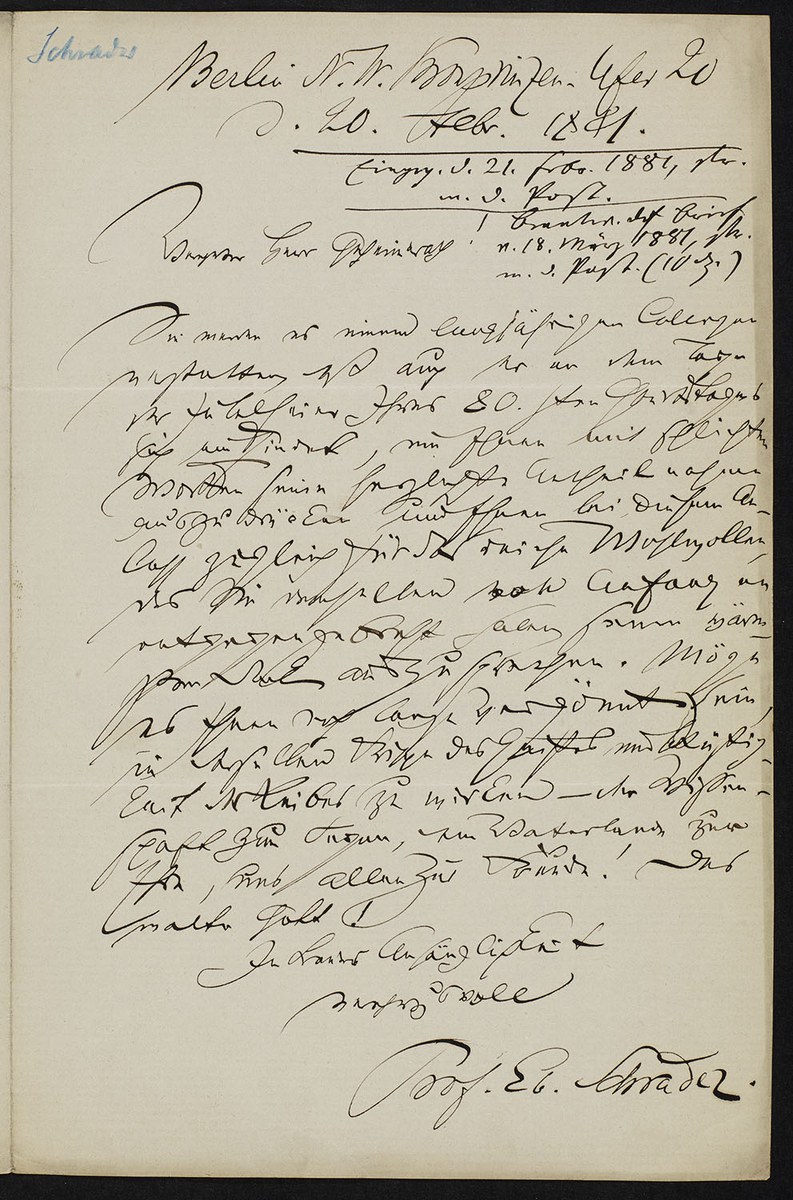 Schrader
Berlin N. W. Kronprinzen-Ufer 20
d. 20. Febr. 1881.
Eingeg. d. 21. Febr. 1881, str.
m. d. Post.
beantw. dch Brief
v. 18. März 1881, str.
m. d. Post. (10 )
Verehrter Herr Geheimrath!
Sie werden es einem langjährigen Collegen
gestatten, daß auch er an dem Tage
der Jubelfeier Ihres 80. sten Geburtstages
sich einfindet, um Ihnen mit schlichten
Worten seine herzlichste Antheilnahme
auszudrücken und Ihnen bei diesem An-
laß zugleich für das reiche Wohlwollen,
das Sie demselben von Anfang an
entgegengebracht haben seinen wärm-
sten Dank auszusprechen. Möge
es Ihnen noch lange vergönnt sein,
in derselben Frische des Geistes und Rüstig-
keit des Leibes zu wirken – der Wissen-
schaft zum Segen, dem Vaterlande zur
Ehre, uns allen zur Freude! Das
walte Gott!
In treuer Anhänglichkeit
verehrungsvoll
Prof. Eb. Schrader.